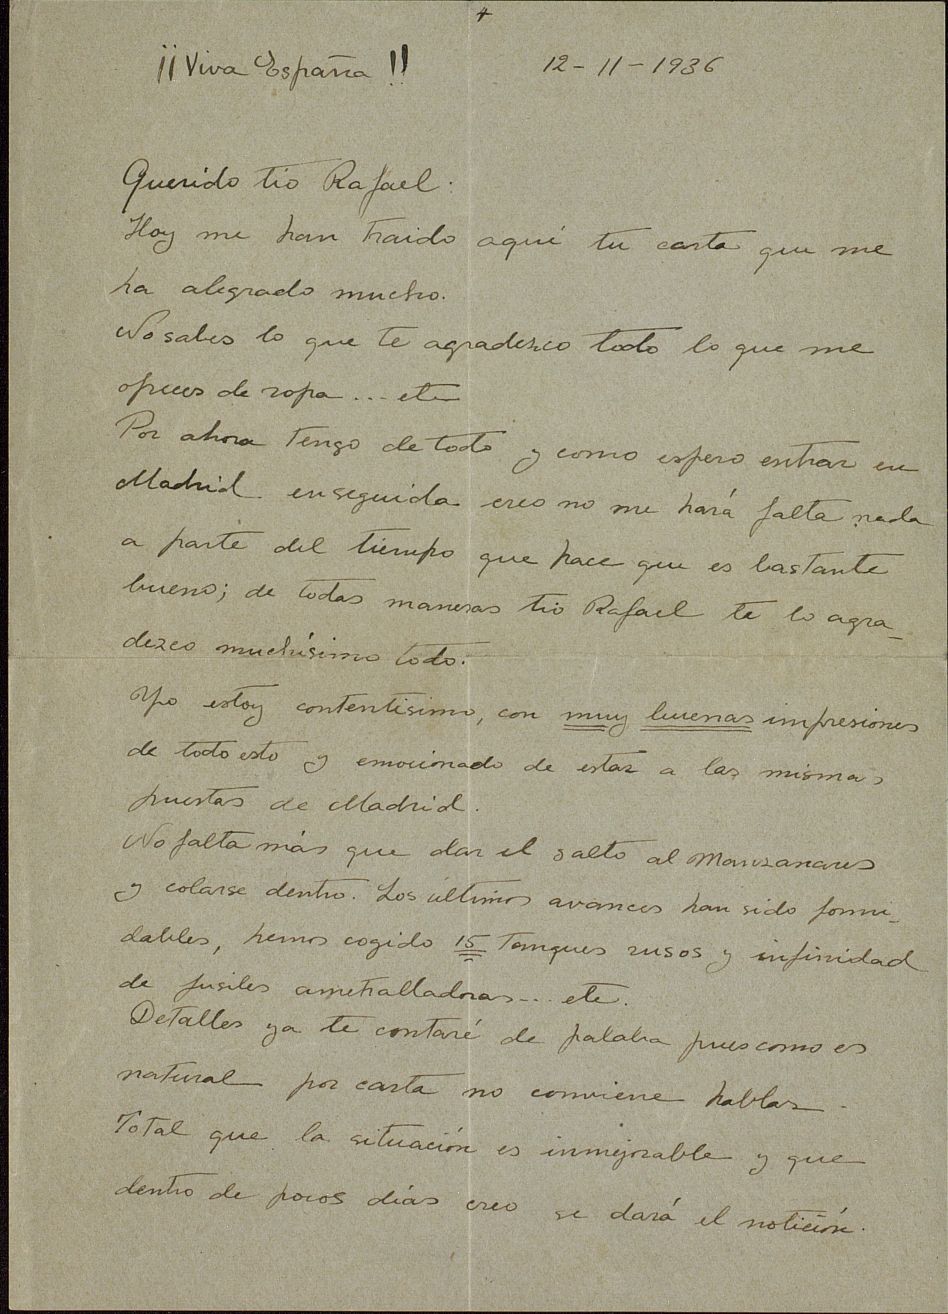 4
¡¡Viva España!! 12-11-1936
Querido tio Rafael:
Hoy me han traido aqui tu carta que me
ha alegrado mucho.
No sabes lo que te agradezco todo lo que me
ofreces de ropa... etc
Por ahora tengo de todo y como espero entrar en
Madrid enseguida creo no me hará falta nada
a parte del tiempo que hace que es bastante
bueno; de todas maneras tio Rafael te lo agra-
dezco muchísimo todo.
Yo estoy contentisimo, con muy buenas impresiones
de todo esto y emocionado de estar a las mismas
puertas de Madrid.
No falta más que dar el salto al Manzanares
y colarse dentro. Los últimos avances han sido formi-
dables, hemos cogido 15 tanques rusos y infinidad
de fusiles ametralladoras... etc.
Detalles ya te contaré de palabra pues como es
natural por carta no conviene hablar.
Total que la situación es inmejorable y que
dentro de pocos días creo se dará el notición.